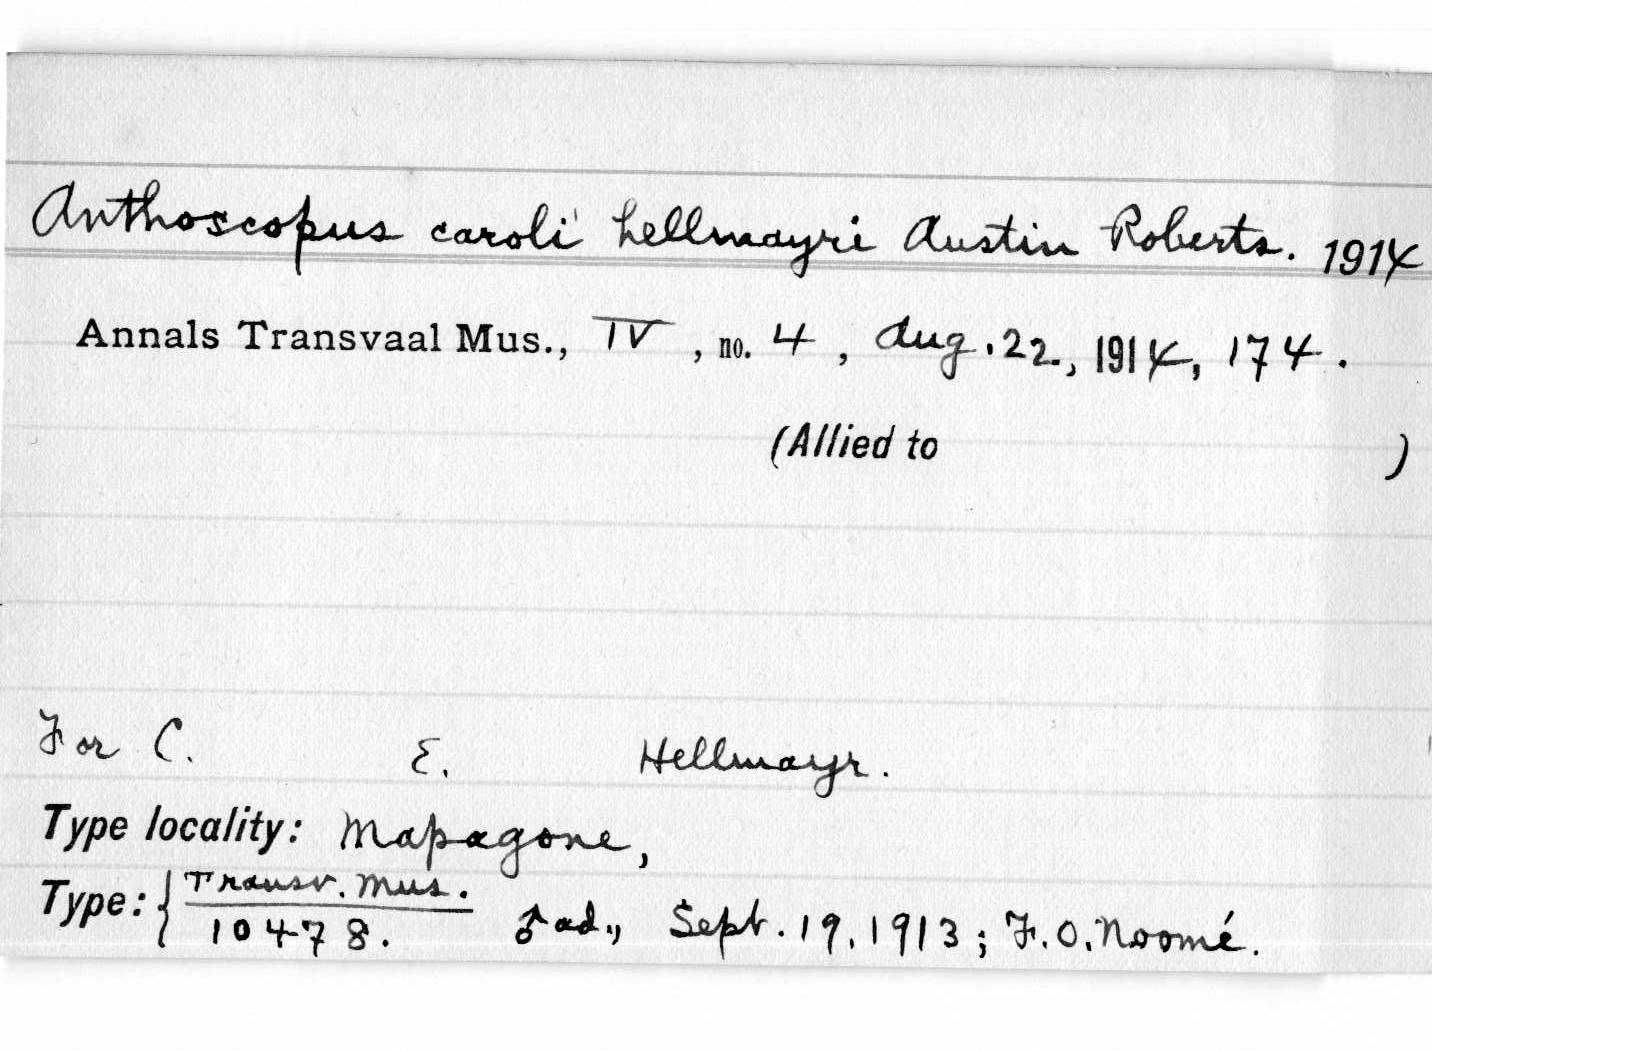 Anthoscopus caroli hellmayri Austin Roberts. 1914
Annals Transvaal Mus., IV, no. 4, Aug. 22., 1914, 174.
(Allied to )
For C. E. Hellmayr.
Type locality: Mapagone,
Type: { Transv. Mus.
10478. ♂ ad., Sept. 19, 1913; F. O. Noomé.